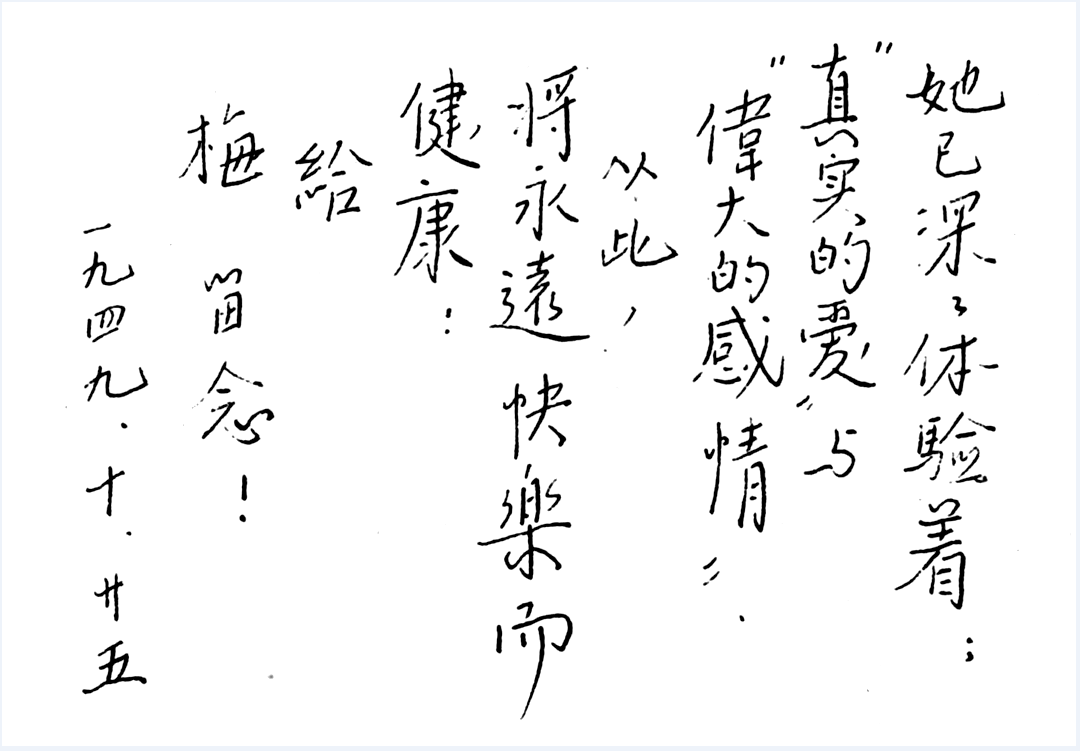 她已深〻体驗着；
“真实的愛”与
“偉大的感情”．
以此，
將永遠快樂而
健康：
給
梅 畄念！
一九四九．十．廿五